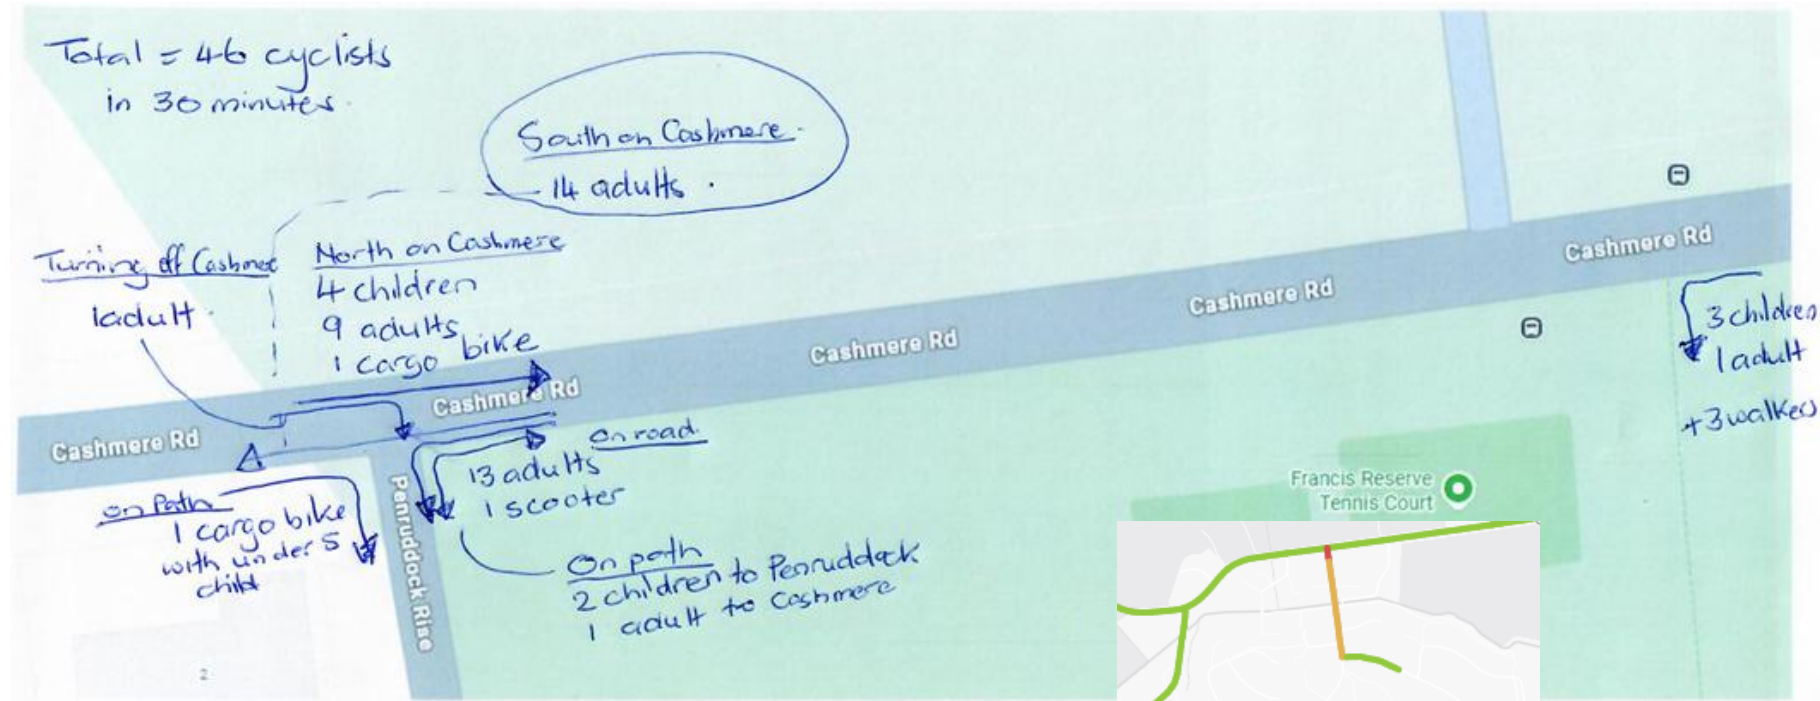 Total = 46 cyclists
in 30 minutes.
South on Cashmere.
14 adults.
Turning off Cashmere
1 adult.
North on Cashmere
4 children
9 adults
1 cargo bike
Cashmere Rd
Cashmere Rd
Cashmere Rd
Cashmere Rd
Cashmere Rd
3 children
1 adult
+3 walkers
on road
13 adults
1 scooter
on Path
1 cargo bike
with under 5
child
Penruddock Rise
On path
2 children to Penruddock
1 adult to Cashmere
Francis Reserve
Tennis Court
2